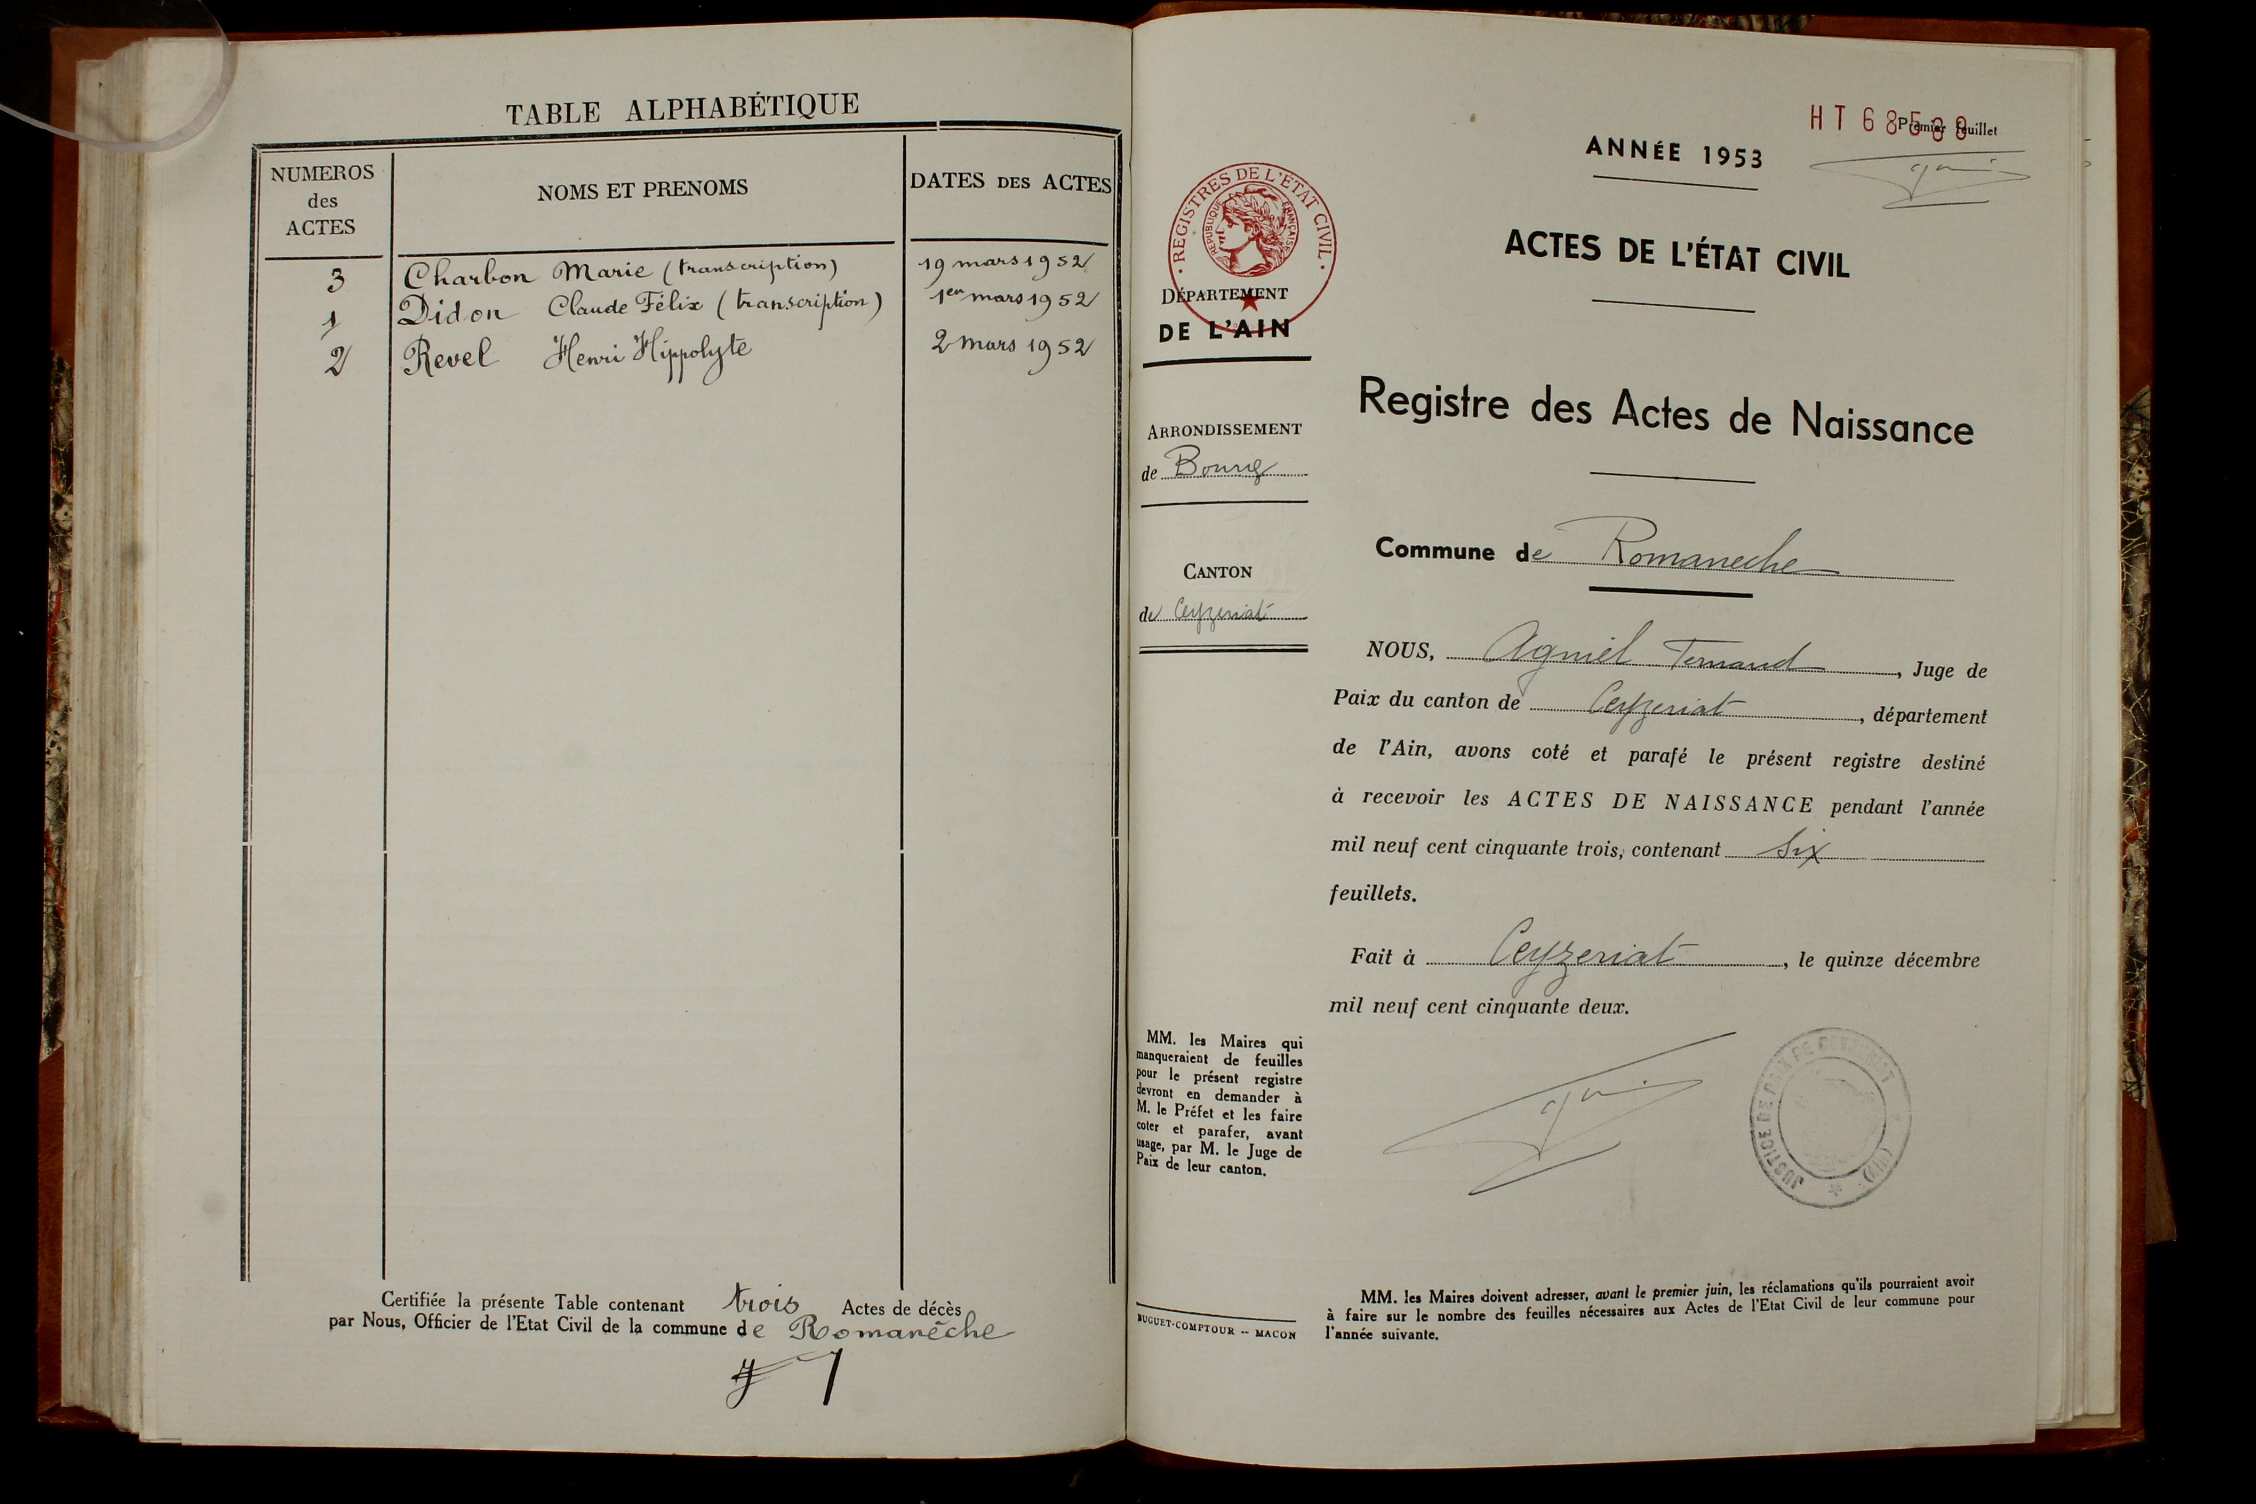 TABLE ALPHABÉTIQUE
NUMEROS
des
ACTES
NOMS ET PRENOMS
DATES DES ACTES
3 Charbon Marie (transcription) 19 mars 1952
1 Didon Claude Félix (transcription) 1er mars 1952
2 Revel Henri Hippolyte 2 mars 1952
Certifiée la présente Table contenant trois Actes de décès
par Nous, Officier de l'Etat Civil de la commune de Romanèche
HT 68
Premier feuillet
ANNÉE 1953
· REGISTRES DE L'ÉTAT CIVIL ·
RÉPUBLIQUE FRANÇAISE
ACTES DE L'ÉTAT CIVIL
DÉPARTEMENT
DE L'AIN
Registre des Actes de Naissance
ARRONDISSEMENT
de Bourg
Commune de Romaneche
CANTON
de Ceyzeriat
NOUS, Agniel Fernand, Juge de
Paix du canton de Ceyzeriat, département
de l'Ain, avons coté et parafé le présent registre destiné
à recevoir les ACTES DE NAISSANCE pendant l'année
mil neuf cent cinquante trois, contenant six
feuillets.
Fait à Ceyzeriat, le quinze décembre
mil neuf cent cinquante deux.
MM. les Maires qui
manqueraient de feuilles
pour le présent registre
devront en demander à
M. le Préfet et les faire
coter et parafer, avant
usage, par M. le Juge de
Paix de leur canton.
JUSTICE DE PAIX DE CEYZERIAT (AIN)
MM. les Maires doivent adresser, avant le premier juin, les réclamations qu'ils pourraient avoir
à faire sur le nombre des feuilles nécessaires aux Actes de l'Etat Civil de leur commune pour
l'année suivante.
BUGUET-COMPTOUR -- MACON